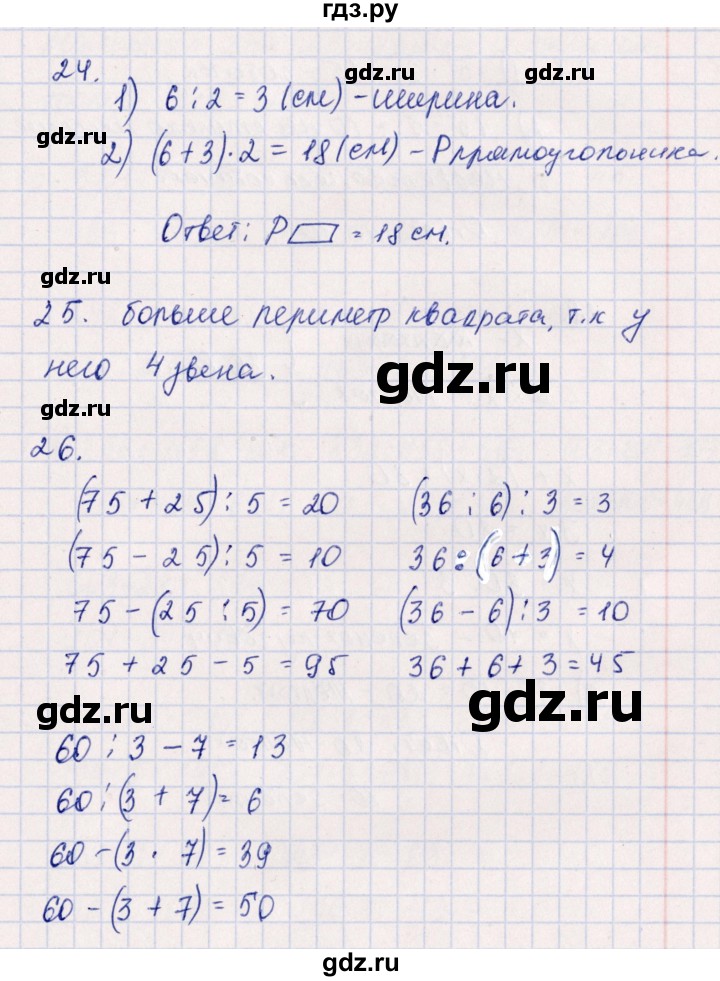 гдз.ру
24.
1) 6 : 2 = 3 (см) - ширина.
gdz.ru
gdz.ru
gdz.ru
2) (6+3)·2 = 18 (см) - Рпрямоугольника.
Ответ: Р▱ = 18 см.
gdz.ru
25. больше периметр квадрата, т.к у
него 4 звена.
gdz.ru
gdz.ru
26.
(75 + 25) : 5 = 20
(36 : 6) : 3 = 3
(75 - 25) : 5 = 10
36 : (6+3) = 4
75 - (25 : 5) = 70
(36 - 6) : 3 = 10
75 + 25 - 5 = 95
36 + 6 + 3 = 45
gdz.ru
gdz.ru
60 : 3 - 7 = 13
60 : (3 + 7) = 6
60 - (3 · 7) = 39
60 - (3 + 7) = 50
gdz.ru